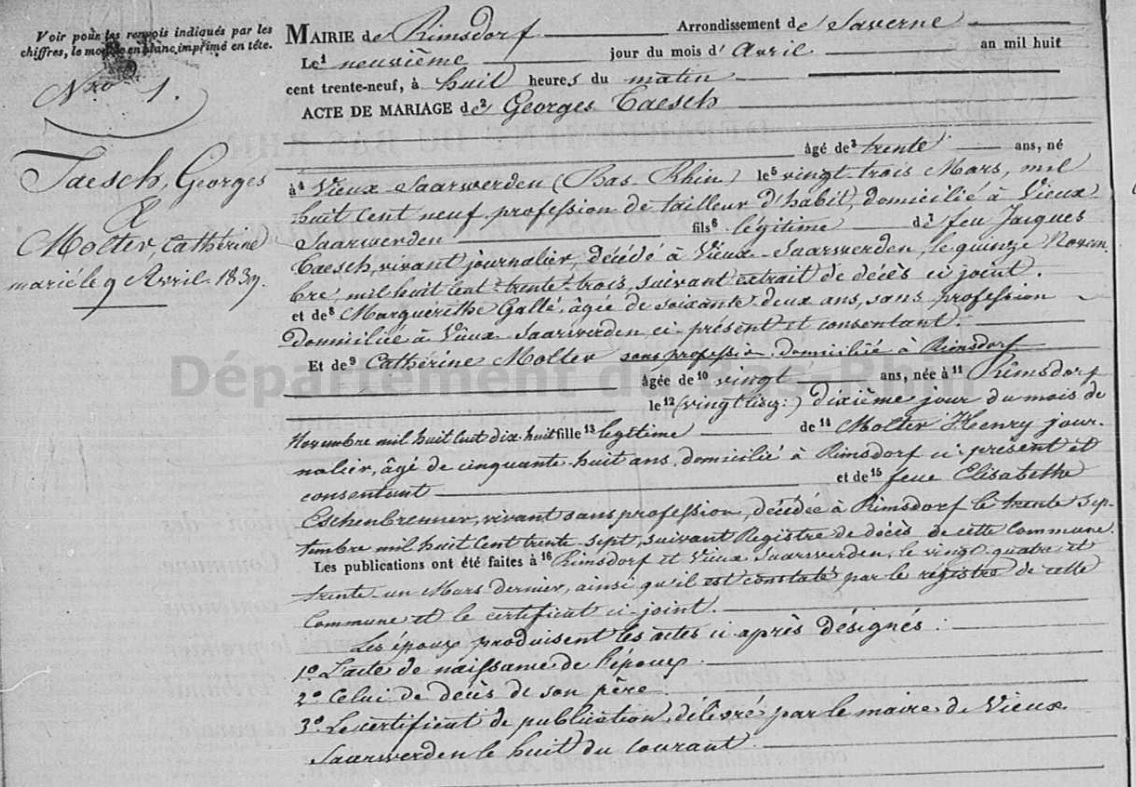 Voir pour les renvois indiqués par les
chiffres, le modèle en blanc, imprimé en tête.
Nro 1.
Taesch, Georges
&
Molter, Cathérine
marié le 9 Avril 1839.
MAIRIE de Rimsdorf Arrondissement de Saverne
Le1 neuvième jour du mois d'Avril an mil huit
cent trente-neuf, à huit heures du matin
ACTE DE MARIAGE de2 Georges Taesch
âgé de3 trente ans, né
à4 Vieux-Saarwerden (Bas-Rhin) le5 vingt trois Mars, mil
huit cent neuf, profession de tailleur d'habit, domicilié à Vieux-
Saarwerden fils6 légitime de7 feu Jacques
Taesch, vivant journalier, décédé à Vieux-Saarwerden, le quinze Novem-
bre, mil huit cent trente-trois, suivant extrait de décès ci joint.
et de8 Marguérithe Gallé, âgée de soixante deux ans, sans profession
domiciliée à Vieux-Saarwerden ci-présent et consentant.
Et de9 Cathérine Molter sans profession, domicilié à Rimsdorf
âgée de10 vingt ans, née à11 Rimsdorf
le12 dixième jour du mois de
Novembre mil huit cent dix huit fille13 légitime de14 Molter Henry jour-
nalier, âgé de cinquante huit ans, domicilié à Rimsdorf ci-présent et
consentant et de15 feue Elisabethe
Eschenbrenner, vivant sans profession, décédée à Rimsdorf le trente Sep-
tembre mil huit cent trente sept, suivant Registre de décès de cette Commune.
Les publications ont été faites à16 Rimsdorf et Vieux Saarwerden, le vingt quatre et
trente-un Mars dernier, ainsi qu'il est constaté par le registre de cette
Commune et le certificat ci-joint.
Les époux produisent les actes ci après désignés :
1o L'acte de naissance de l'époux.
2o Celui de décès de son père.
3o Le certificat de publication, délivré par le maire de Vieux
Saarwerden le huit du courant.
Département du Bas-Rhin